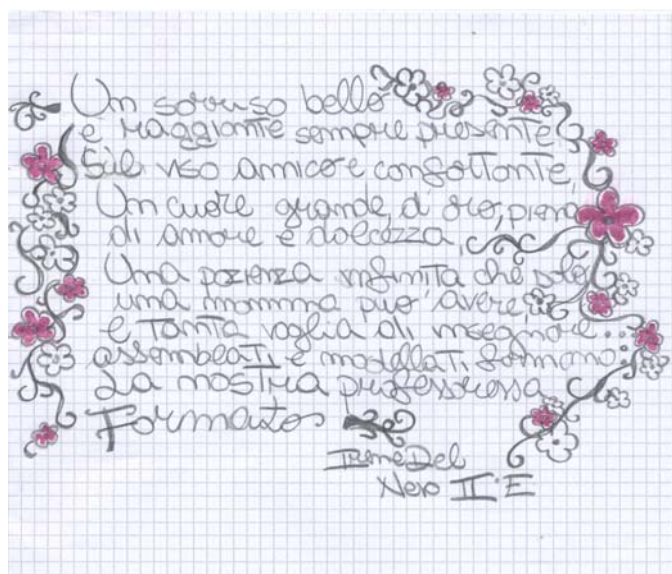 Un sorriso bello
e raggiante sempre presente
Sul viso amico e confortante,
Un cuore grande, d'oro, pieno
di amore e dolcezza,
Una pazienza infinita che solo
una mamma può avere,
e tanta voglia di insegnare...:
assemblati e modellati formano
La nostra professoressa
Formento
Irene Del
Nero II°E